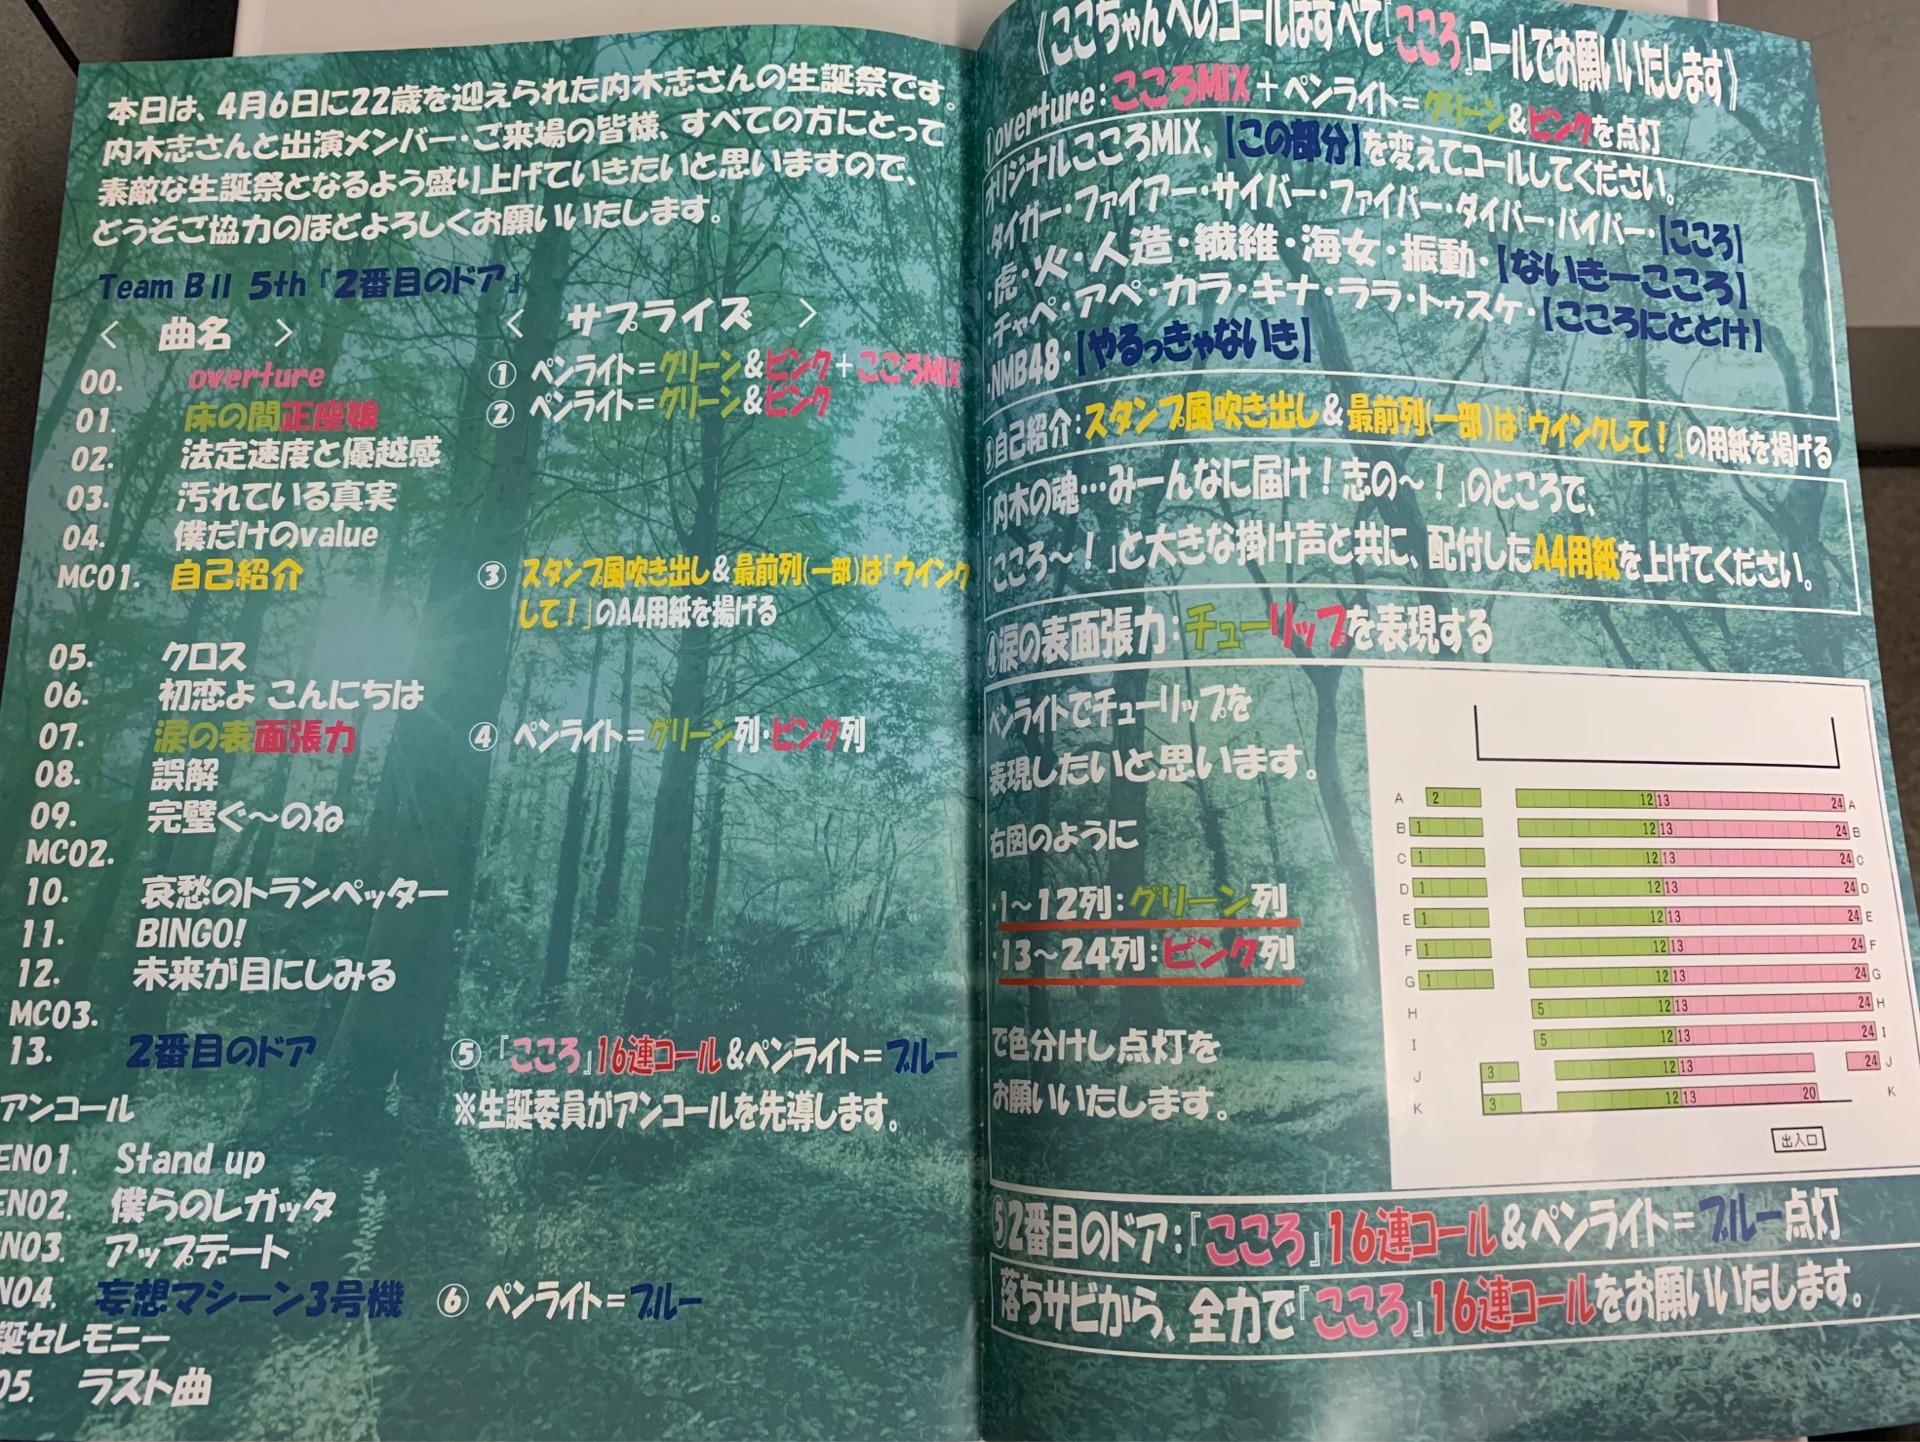 本日は、4月6日に22歳を迎えられた内木志さんの生誕祭です。
内木志さんと出演メンバー・ご来場の皆様、すべての方にとって
素敵な生誕祭となるよう盛り上げていきたいと思いますので、
どうぞご協力のほどよろしくお願いいたします。
Team BII 5th『2番目のドア』
< 曲名 > < サプライズ >
00. overture ① ペンライト=グリーン&ピンク+こころMIX
01. 床の間正座娘 ② ペンライト=グリーン&ピンク
02. 法定速度と優越感
03. 汚れている真実
04. 僕だけのvalue
MC01. 自己紹介 ③ スタンプ風吹き出し&最前列(一部)は「ウインク
して!」のA4用紙を掲げる
05. クロス
06. 初恋よ こんにちは
07. 涙の表面張力 ④ ペンライト=グリーン列・ピンク列
08. 誤解
09. 完璧ぐ〜のね
MC02.
10. 哀愁のトランペッター
11. BINGO!
12. 未来が目にしみる
MC03.
13. 2番目のドア ⑤ 『こころ』16連コール&ペンライト=ブルー
アンコール ※生誕委員がアンコールを先導します。
EN01. Stand up
EN02. 僕らのレガッタ
EN03. アップデート
EN04. 妄想マシーン3号機 ⑥ ペンライト=ブルー
誕セレモニー
05. ラスト曲
《ここちゃんへのコールはすべて『こころ』コールでお願いいたします》
①overture:こころMIX+ペンライト=グリーン&ピンクを点灯
オリジナルこころMIX、【この部分】を変えてコールしてください。
・タイガー・ファイアー・サイバー・ファイバー・ダイバー・バイバー・【こころ】
・虎・火・人造・繊維・海女・振動・【ないきーこころ】
・チャペ・アペ・カラ・キナ・ララ・トゥスケ・【こころにとどけ】
・NMB48・【やるっきゃないき】
③自己紹介:スタンプ風吹き出し&最前列(一部)は「ウインクして!」の用紙を掲げる
「内木の魂…みーんなに届け!志の〜!」のところで、
「こころ〜!」と大きな掛け声と共に、配付したA4用紙を上げてください。
④涙の表面張力:チューリップを表現する
ペンライトでチューリップを
表現したいと思います。
右図のように
・1〜12列:グリーン列
・13〜24列:ピンク列
で色分けし点灯を
お願いいたします。
A 2 12 13 24 A
B 1 12 13 24 B
C 1 12 13 24 C
D 1 12 13 24 D
E 1 12 13 24 E
F 1 12 13 24 F
G 1 12 13 24 G
H 5 12 13 24 H
I 5 12 13 24 I
J 3 12 13 24 J
K 3 12 13 20 K
出入口
⑤2番目のドア:『こころ』16連コール&ペンライト=ブルー点灯
落ちサビから、全力で『こころ』16連コールをお願いいたします。